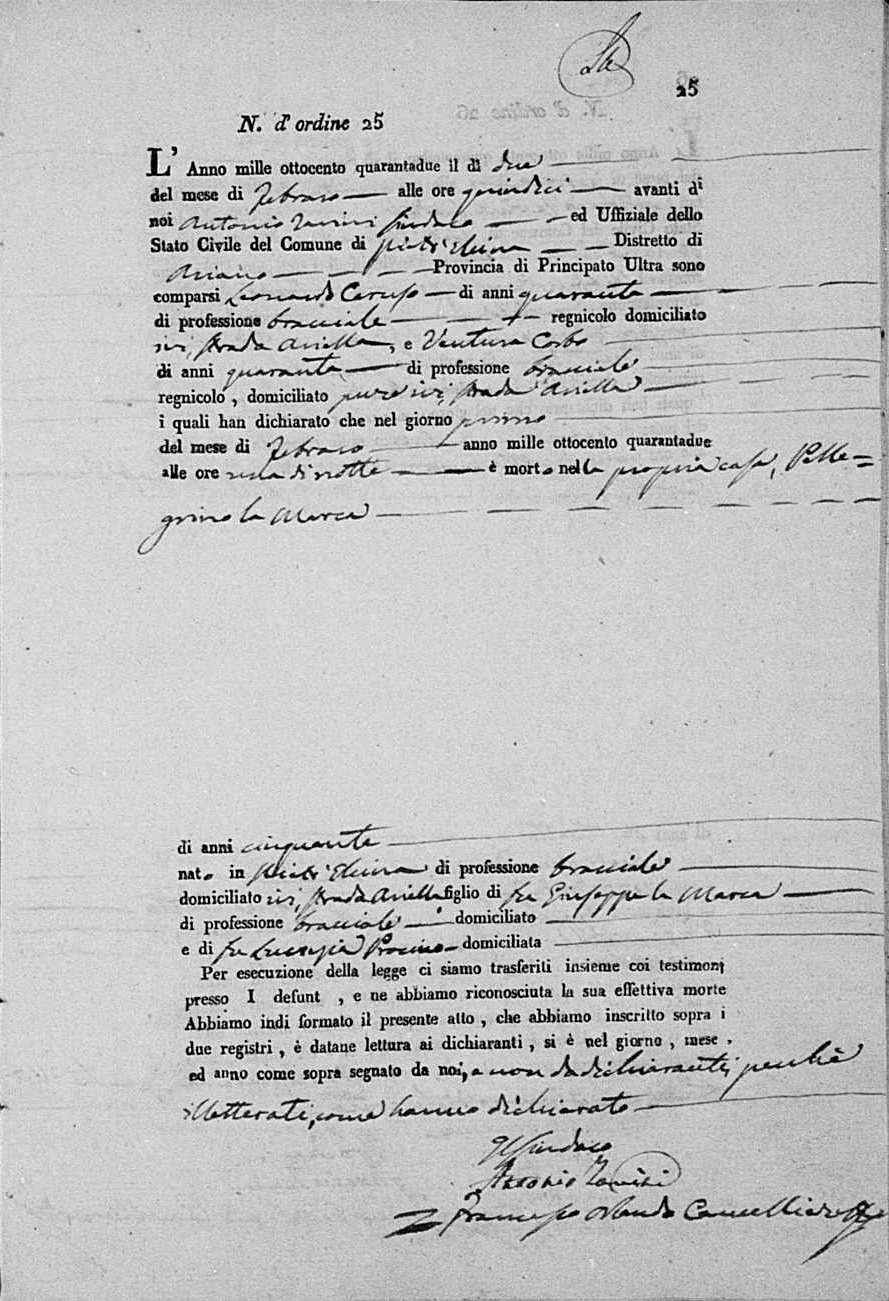 25
N. d' ordine 25
L' Anno mille ottocento quarantadue il dì due
del mese di Febraro alle ore quindici avanti di
noi Antonio Sindaco ed Uffiziale dello
Stato Civile del Comune di Distretto di
Ariano Provincia di Principato Ultra sono
comparsi Leonardo Caruso di anni quaranta
di professione bracciale regnicolo domiciliato
ivi, strada Ariella, e Ventura Corbo
di anni quaranta di professione bracciale
regnicolo, domiciliato pure ivi, strada Ariella
i quali han dichiarato che nel giorno primo
del mese di Febraro anno mille ottocento quarantadue
alle ore di notte è morto nella propria casa, Pelle=
grino la Marca
di anni cinquanta
nato in di professione bracciale
domiciliato ivi, strada Ariella figlio di fu Giuseppe la Marca
di professione bracciale domiciliato
e di fu domiciliata
Per esecuzione della legge ci siamo trasferiti insieme coi testimonj
presso l defunt , e ne abbiamo riconosciuta la sua effettiva morte
Abbiamo indi formato il presente atto, che abbiamo inscritto sopra i
due registri, è datane lettura ai dichiaranti, si è nel giorno, mese .
ed anno come sopra segnato da noi, e non da dichiaranti, perchè
illetterati, come hanno dichiarato
Il Sindaco
Antonio
Francesco Orlando Cancelliere